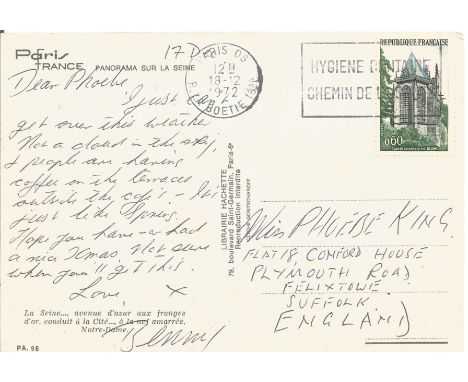 Paris
FRANCE
PANORAMA SUR LA SEINE
17 D
Dear Phoebe
Just
get over this weather
Not a cloud in the sky,
& people are having
coffee on the terraces
outside the cafés - but
just like Spring.
Hope you have - or had
a nice Xmas. Not sure
when you'll get this.
Love, X
La Seine..., avenue d'azur aux franges
d'or, conduit à la Cité..., à la nef amarrée,
Notre-Dame.
PA. 98
LIBRAIRIE HACHETTE
79, boulevard Saint-Germain, Paris-6e
Reproduction interdite
PARIS 08
12 H
18-12
1972
R. LA BOETIE (8E)
HYGIENE
CHEMIN DE
REPUBLIQUE FRANCAISE
0,60
SAINTE CHAPELLE DE RIOM
Miss PHOEBE KING
FLAT 18 CONFORD HOUSE
PLYMOUTH ROAD
FELIXTOWE
SUFFOLK
ENGLAND